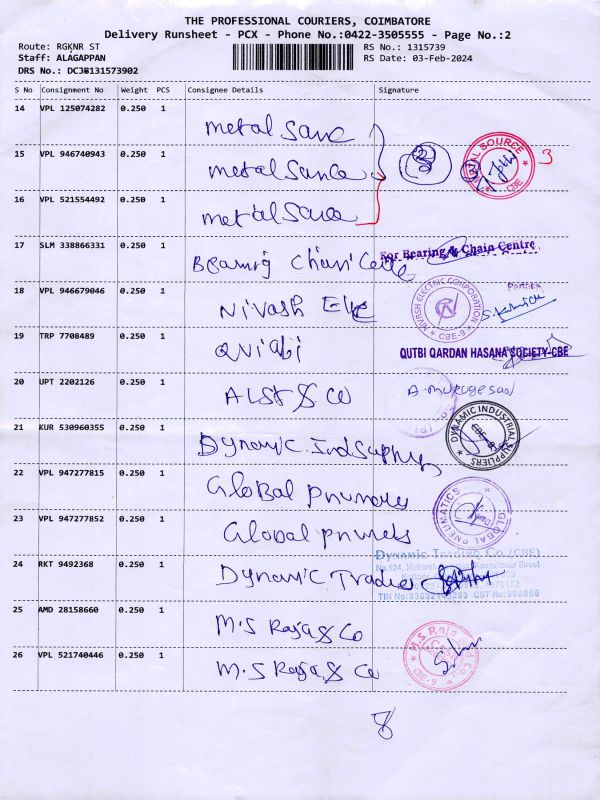 THE PROFESSIONAL COURIERS, COIMBATORE
Delivery Runsheet - PCX - Phone No.:0422-3505555 - Page No.:2
Route: RGKNR ST RS No.: 1315739
Staff: ALAGAPPAN RS Date: 03-Feb-2024
DRS No.: DCJB131573902
S No Consignment No Weight PCS Consignee Details Signature
14 VPL 125074282 0.250 1
metal
15 VPL 946740943 0.250 1 METAL SOURCE CBE 3
metal
16 VPL 521554492 0.250 1
metal
17 SLM 338866331 0.250 1 For Bearing & Chain Centre
Bearing Chain
18 VPL 946679046 0.250 1 NIVASH ELECTRIC CORPORATION CBE-9
Nivash Ele
19 TRP 7708489 0.250 1 QUTBI QARDAN HASANA SOCIETY-CBE
20 UPT 2202126 0.250 1 A. murugesan
& co
21 KUR 530960355 0.250 1 DYNAMIC INDUSTRIAL SUPPLIERS
Dynamic
22 VPL 947277815 0.250 1 GLOBAL PNEUMATICS
Global
23 VPL 947277852 0.250 1
Global
24 RKT 9492368 0.250 1 Dynamic Trading Co.(CBE)
Dynamic
25 AMD 28158660 0.250 1
M.S Raja & Co
26 VPL 521740446 0.250 1 CBE-9
M.S Raja & Co
8